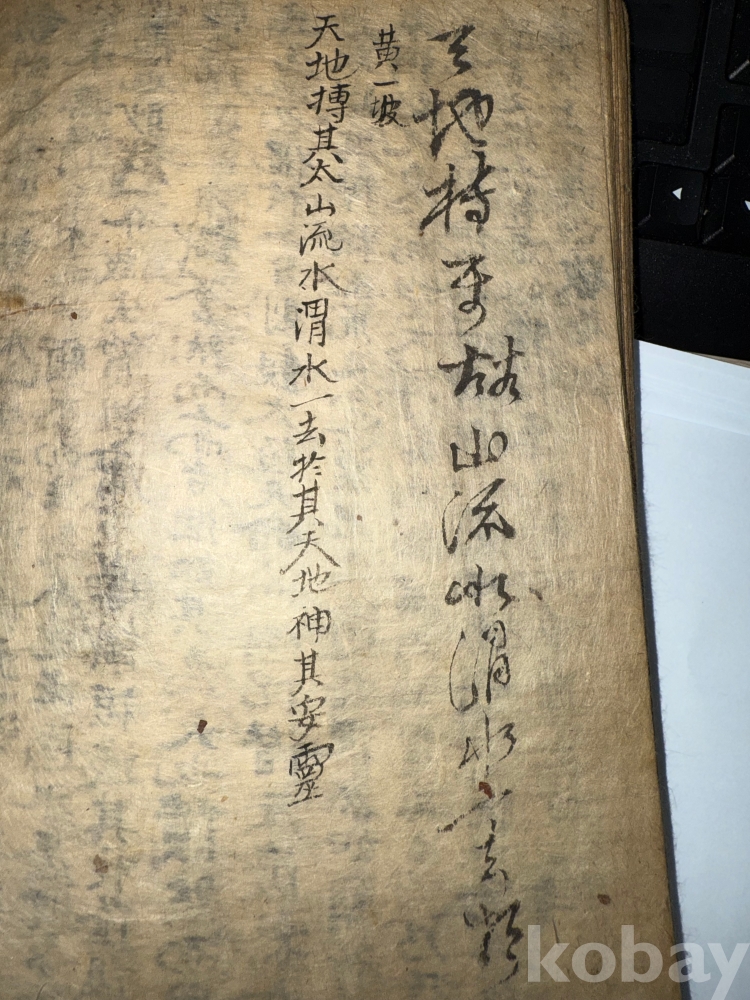 天地持 山流水渭水一去於
黄一坡
天地搏其太山流水渭水一去於其天地神其安靈
kobay